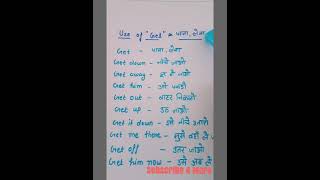 Use of "Get" = पाना, लेना
Get - पाना, लेना
Get down - नीचे जाओ
Get away -
Get him - उसे पकड़ो
Get out - बाहर निकलो
Get up - उठ जाओ
Get it down - इसे नीचे
Get me there - मुझे वहाँ ले
Get off - उतर जाओ
Get him now - उसे अब ले
Subscribe &